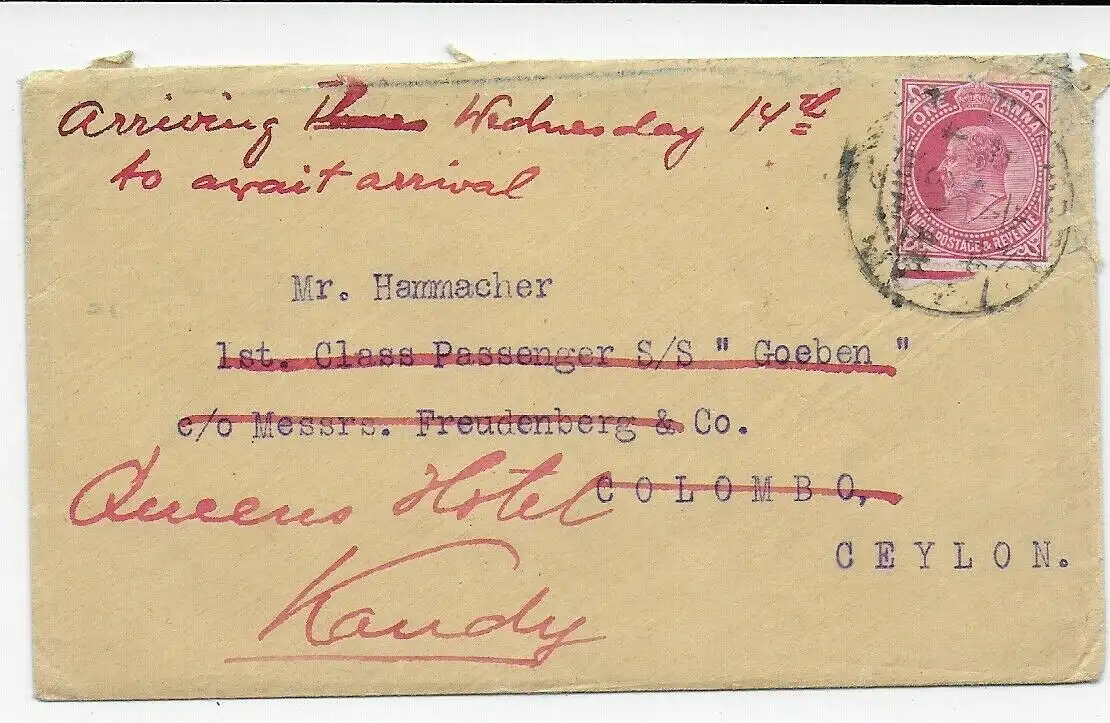 Arriving Wednesday 14th
to await arrival
ONE ANNA
POSTAGE & REVENUE
Mr. Hammacher
1st. Class Passenger S/S " Goeben "
c/o Messrs. Freudenberg & Co.
COLOMBO,
Queens Hotel
CEYLON.
Kandy